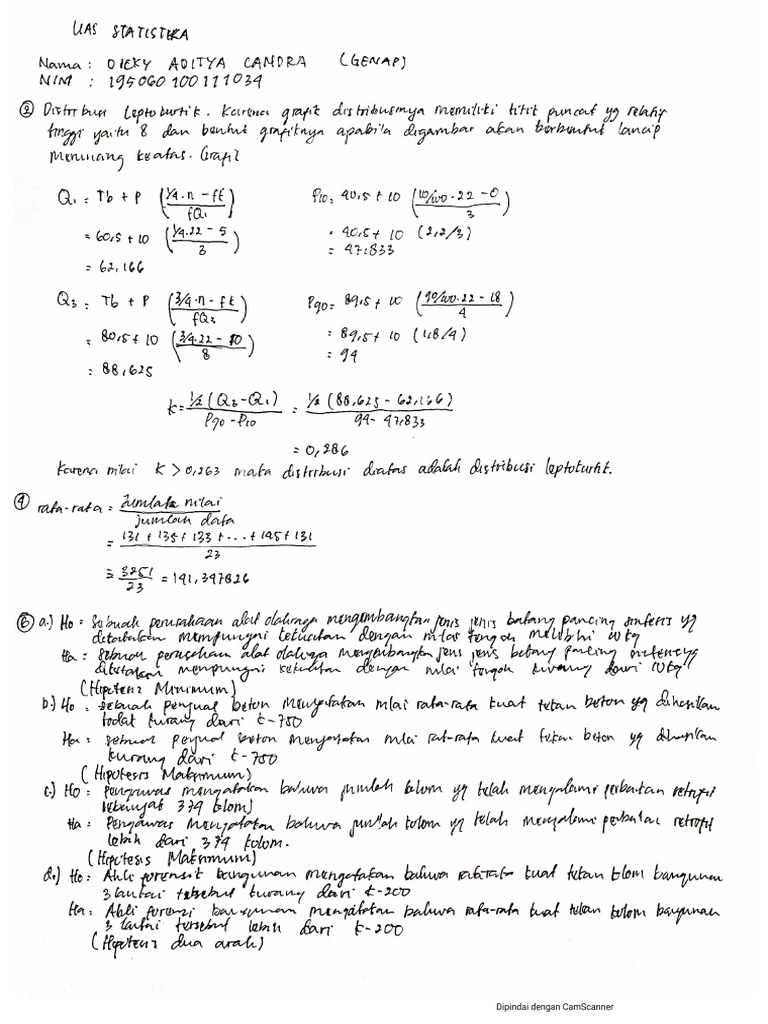 UAS STATISTIKA
Nama : DICKY ADITYA CANDRA (GENAP)
NIM : 195060100111039
② Distribusi leptokurtik. Karena grafik distribusinya memiliki titik puncak yg relatif
tinggi yaitu 8 dan bentuk grafiknya apabila digambar akan berbentuk lancip
meruncing keatas. Grafik
Q1 = Tb + P (1/4.n - fk / fQ1)
= 60,5 + 10 (1/4.22 - 5 / 3)
= 62,166
P10 = 40,5 + 10 (10/100.22 - 0 / 3)
= 40,5 + 10 (2,2/3)
= 47,833
Q3 = Tb + P (3/4.n - fk / fQ3)
= 80,5 + 10 (3/4.22 - 10 / 8)
= 88,625
P90 = 89,5 + 10 (90/100.22 - 18 / 4)
= 89,5 + 10 (1,8/4)
= 94
k = 1/2 (Q3 - Q1) / P90 - P10 = 1/2 (88,625 - 62,166) / 94 - 47,833
= 0,286
Karena nilai K > 0,263 maka distribusi diatas adalah distribusi leptokurtik.
④ rata-rata = Jumlah nilai / jumlah data
= 131 + 135 + 133 + ... + 145 + 131 / 23
= 3251 / 23 = 141,347826
⑥ a.) Ho = Sebuah perusahaan alat olahraga mengembangkan jenis jenis batang pancing sintetis yg
dikatakan mempunyai kekuatan dengan nilai tengah melebihi 10 kg
Ha = Sebuah perusahaan alat olahraga mengembangkan jenis jenis batang pancing sintetis yg
dikatakan mempunyai kekuatan dengan nilai tengah kurang dari 10 kg
(Hipotesis Minimum)
b.) Ho = Sebuah penjual beton menyatakan nilai rata-rata kuat tekan beton yg dihasilkan
tidak kurang dari k-750
Ha = sebuah penjual beton menyatakan nilai rata-rata kuat tekan beton yg dihasilkan
kurang dari k-750
(Hipotesis Maksimum)
c.) Ho = Pengawas mengatakan bahwa jumlah kolom yg telah mengalami perbaikan retrofit
sebanyak 374 kolom
Ha = Pengawas mengatakan bahwa jumlah kolom yg telah mengalami perbaikan retrofit
lebih dari 374 kolom.
(Hipotesis Maksimum)
d.) Ho = Ahli forensik bangunan mengatakan bahwa rata-rata kuat tekan kolom bangunan
3 lantai tersebut kurang dari k-200
Ha = Ahli forensi bangunan mengatakan bahwa rata-rata kuat tekan kolom bangunan
3 lantai tersebut lebih dari k-200
(Hipotesis dua arah)
Dipindai dengan CamScanner